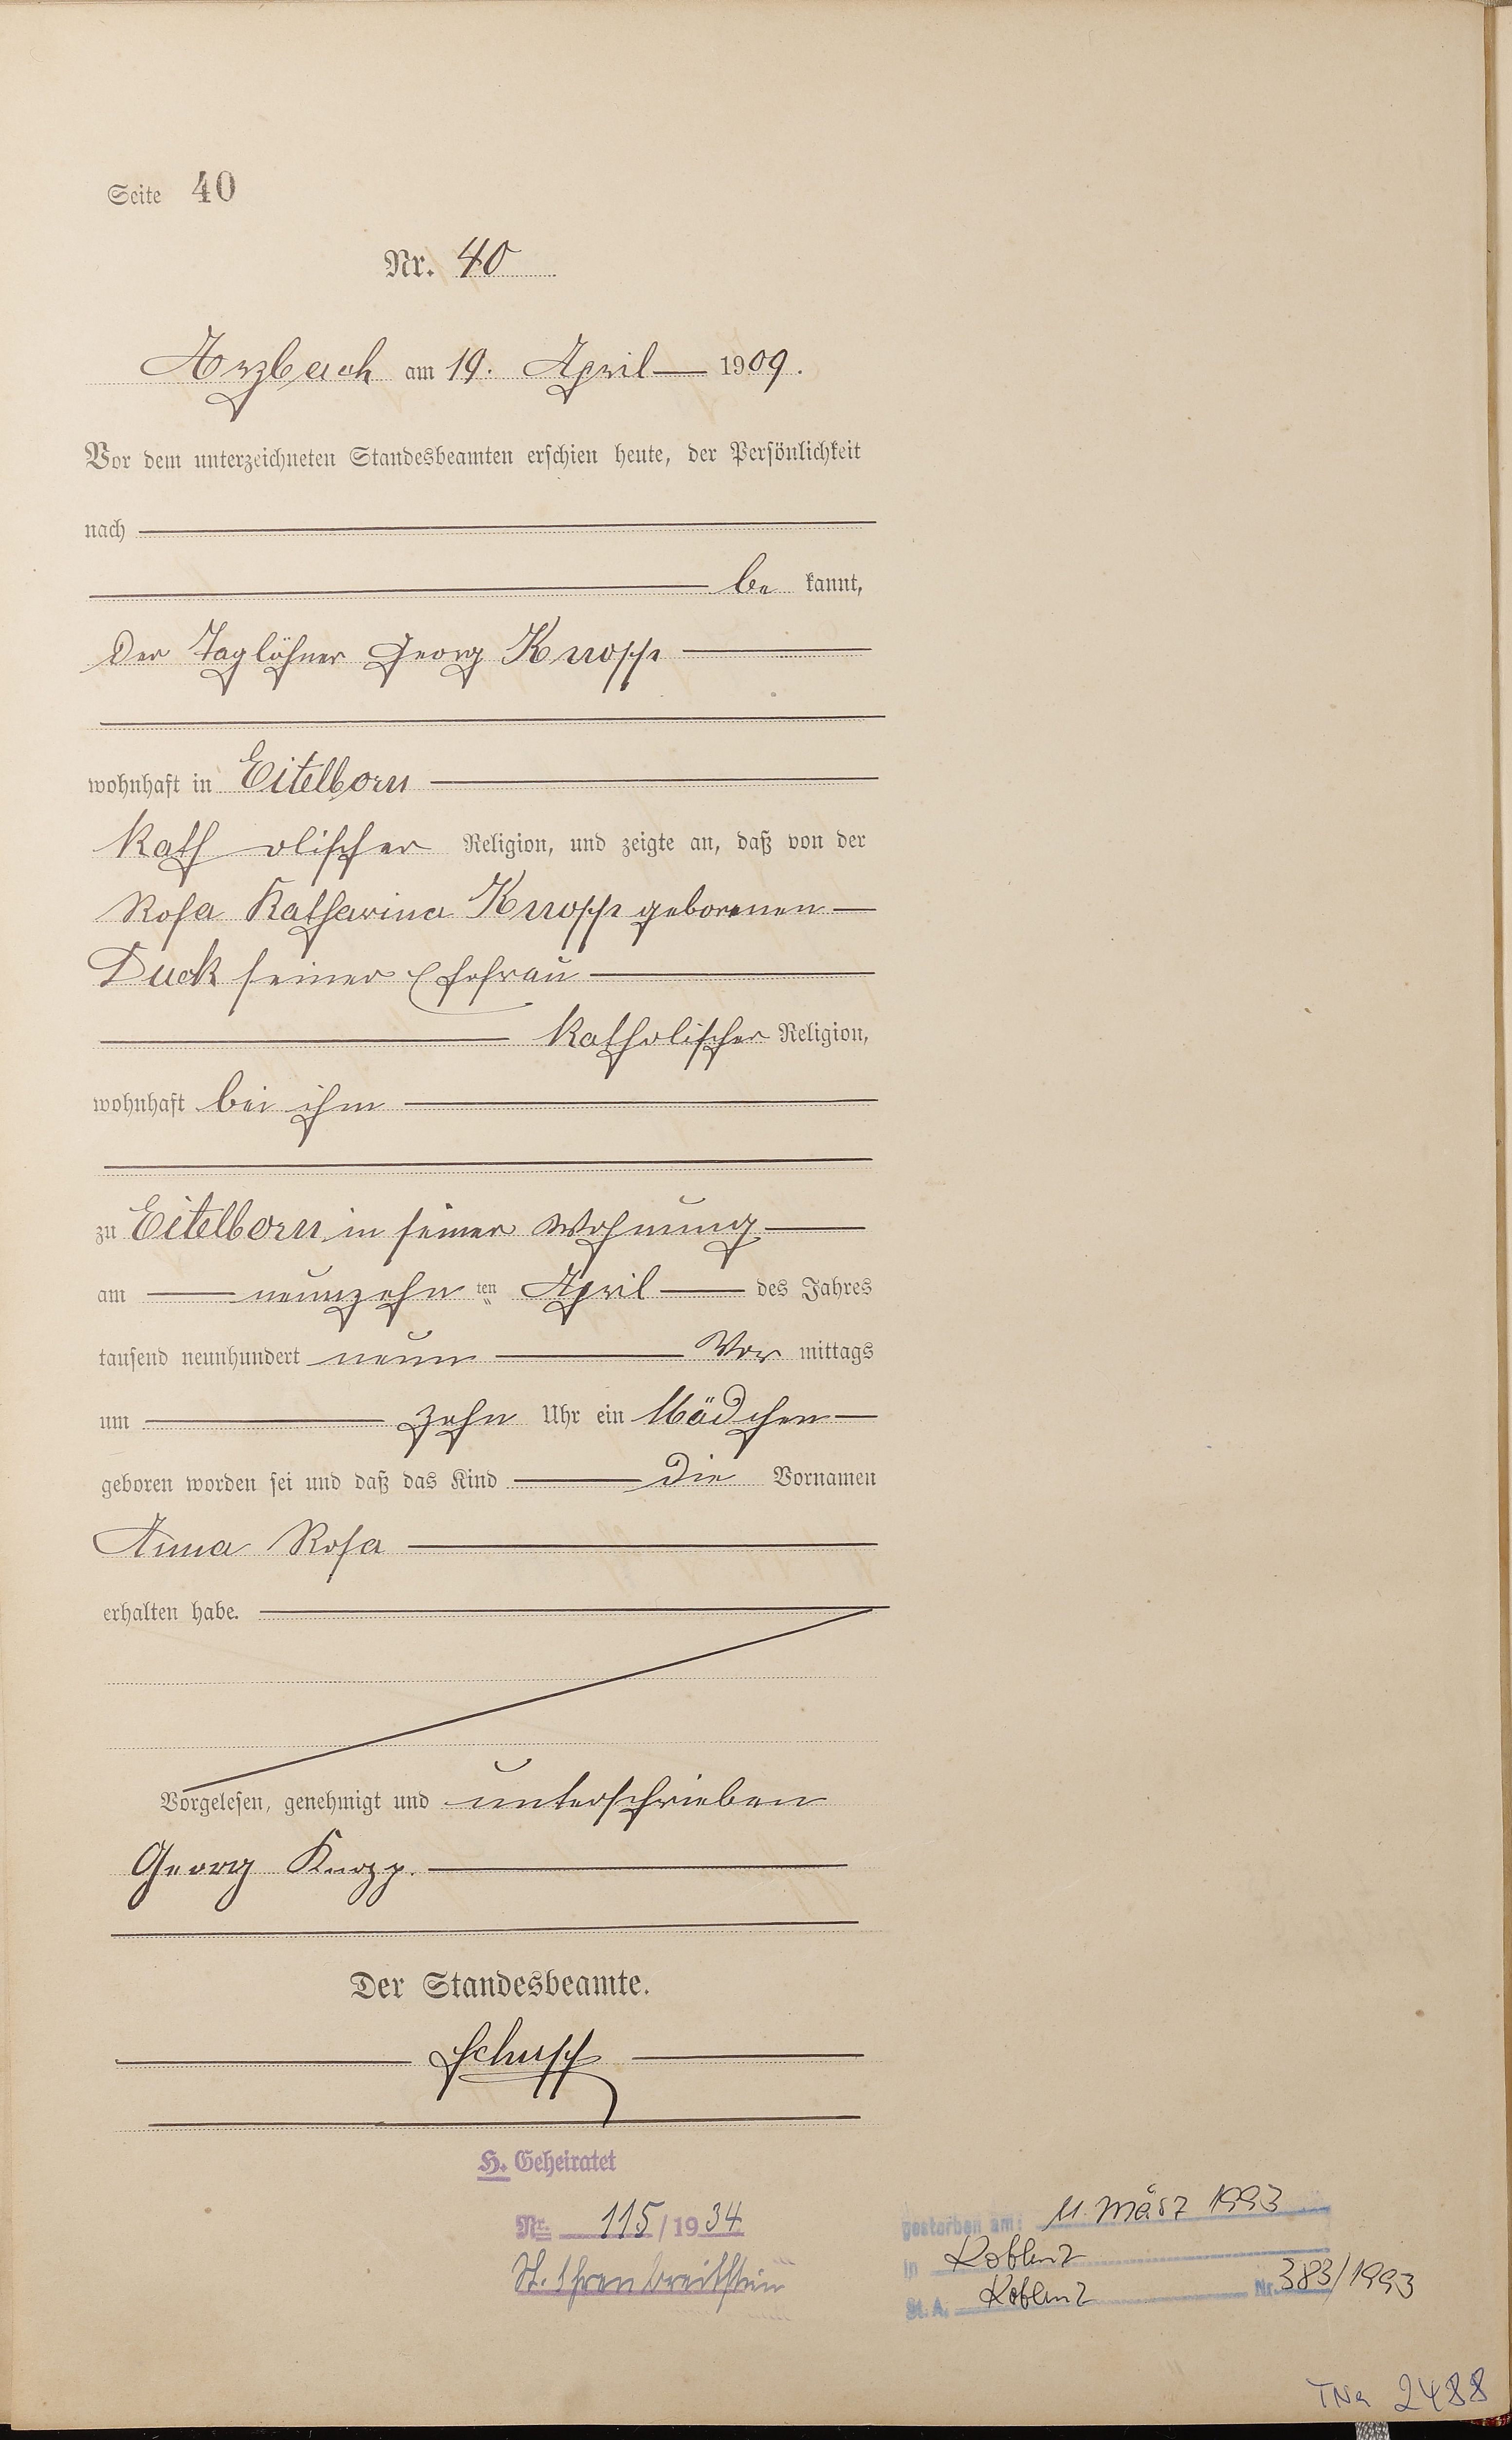 Seite 40
Nr. 40
Arzbach am 19. April 1909.
Vor dem unterzeichneten Standesbeamten erschien heute, der Persönlichkeit
nach
be kannt,
der Taglöhner Georg Knopp
wohnhaft in Eitelborn
kath olischer Religion, und zeigte an, daß von der
Rosa Katharina Knopp geborenen
Duck seiner Ehefrau
katholischer Religion,
wohnhaft bei ihm
zu Eitelborn in seiner Wohnung
am neunzehn ten April des Jahres
tausend neunhundert neun Vor mittags
um zehn Uhr ein Mädchen
geboren worden sei und daß das Kind die Vornamen
Anna Rosa
erhalten habe.
Vorgelesen, genehmigt und unterschrieben
Georg Knopp.
Der Standesbeamte.
Schupp
H. Geheiratet
Nr. 115/1934
St. Ehrenbreitstein
gestorben am: 11. März 1993
in Koblenz
St. A. Koblenz Nr. 383/1993
2488